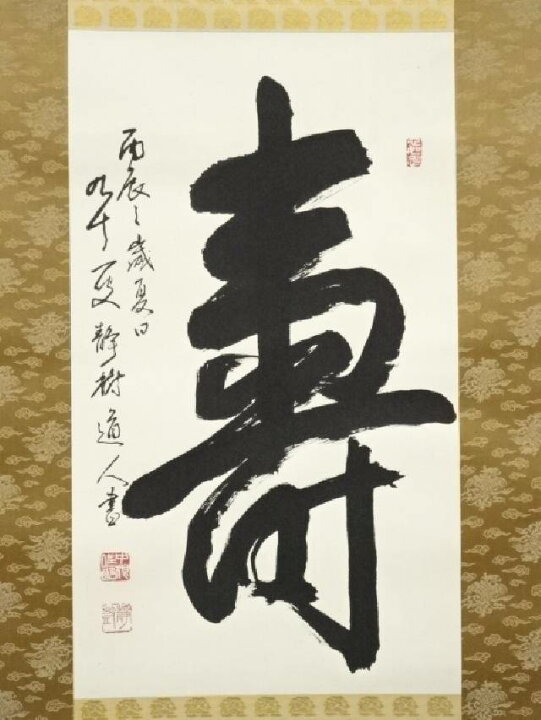 壽
丙辰之歳夏日
九十一叟静樹道人書